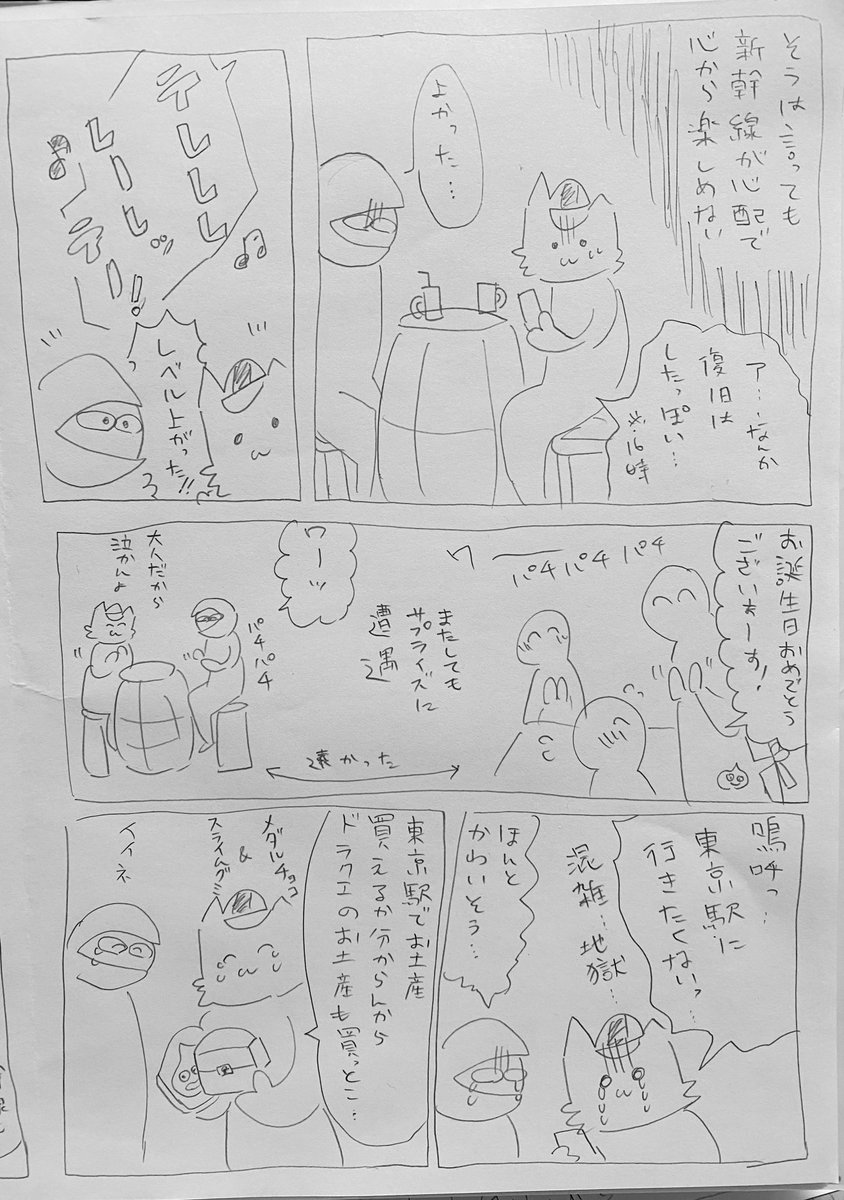 そうは言っても
新幹線が心配で
心から楽しめない
ア…なんか
復旧は
したっぽい…
※16時
よかった…
テレレレ
レーレ
テー!!
レベル上がった!!
お誕生日おめでとう
ございまーす!
ワー
パチパチパチ
またしても
サプライズに
遭遇
ワーッ
パチパチ
大人だから
泣かんよ
遠かった
嗚呼っ…
東京駅に
行きたくないっ…
混雑…地獄…
ほんと
かわいそう…
東京駅でお土産
買えるか分からんから
ドラクエのお土産も買っとこ…
メダルチョコ
&
スライムグミ
イイネ